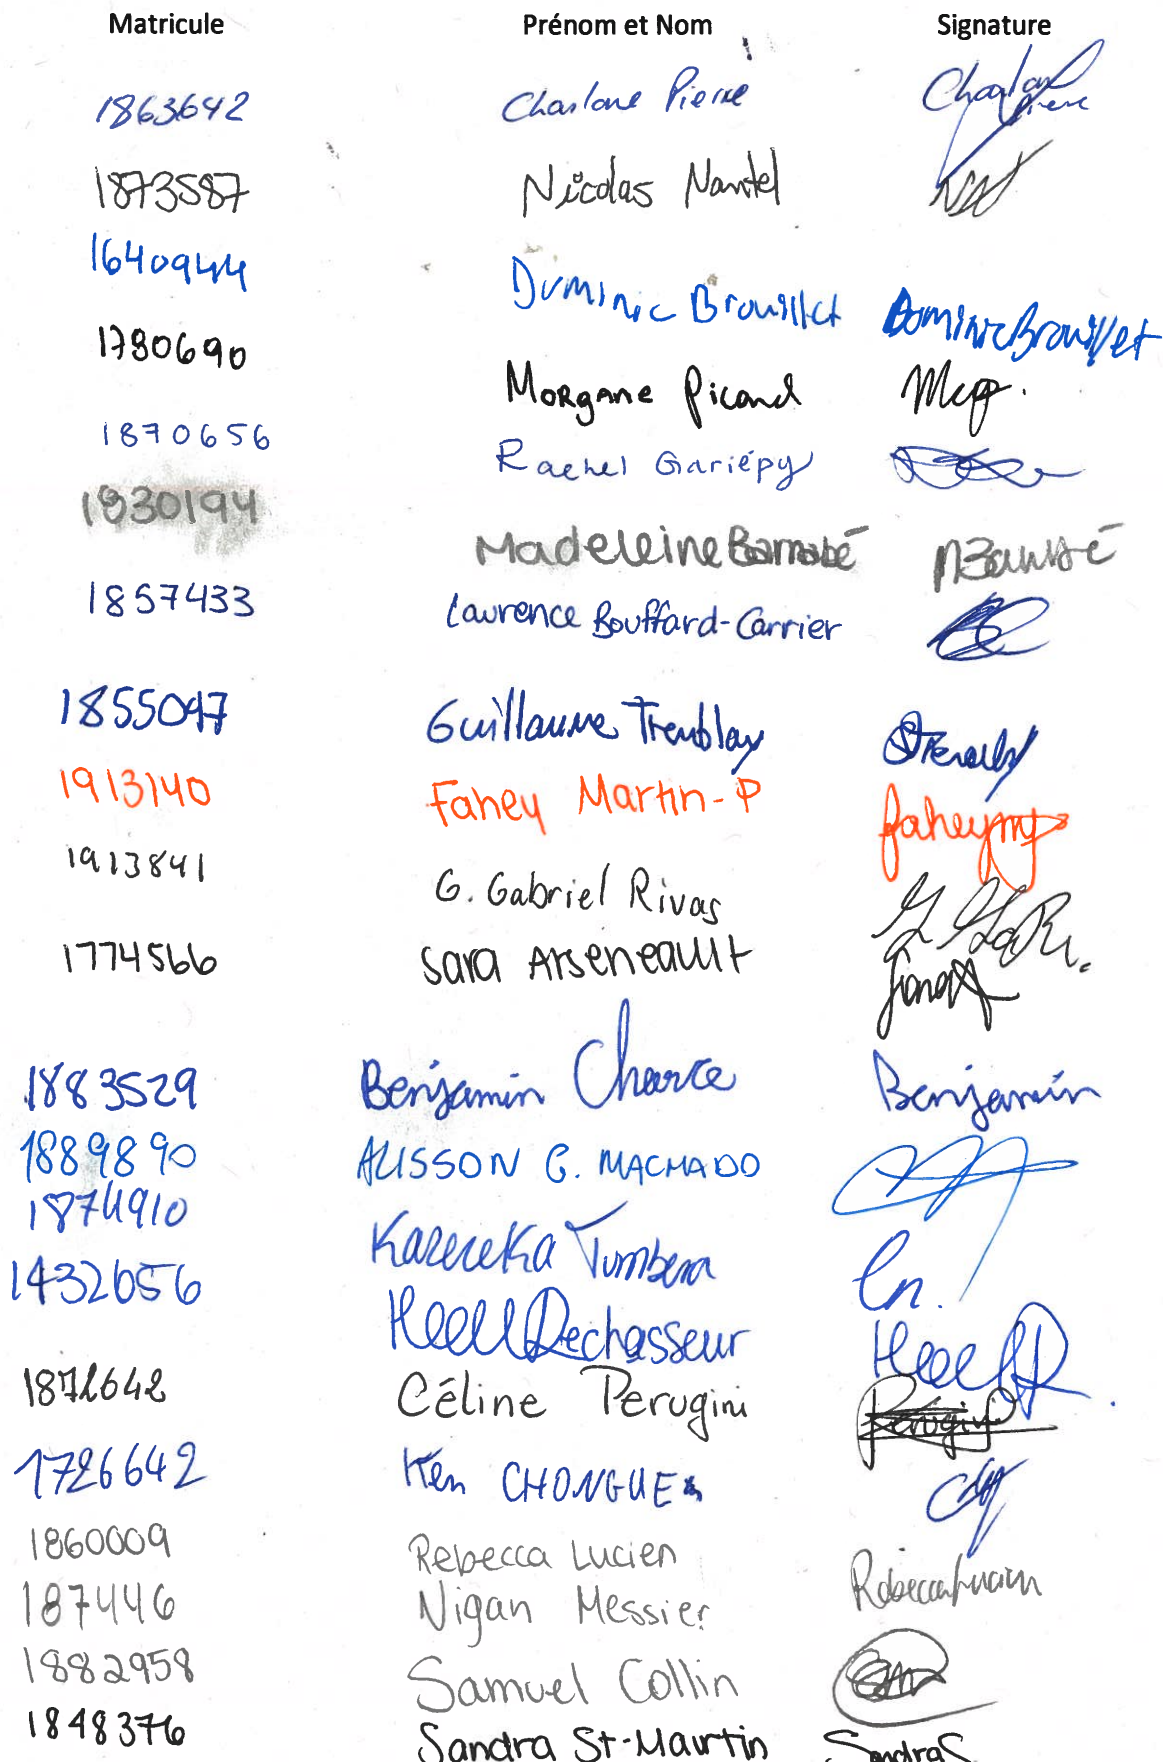 Matricule Prénom et Nom Signature
1863642 Charlane Pierre Charlane Pierre
1873587 Nicolas Nantel
1640944 Dominic Brouillet Dominic Brouillet
1780690 Morgane Picard
1870656 Rachel Gariépy
1830194 Madeleine Barnabé MBarnabé
1857433 Laurence Bouffard-Carrier
1855097 Guillaume Tremblay GTremblay
1913140 Fahey Martin-P faheymp
1913841 G. Gabriel Rivas
1774566 Sara Arseneault
1883529 Benjamin Benjamin
1889890 ALISSON G. MACHADO
1874910
1432656 Dechasseur
1872642 Céline Perugini Perugini
1726642 Ken
1860009 Rebecca Lucien Rebecca Lucien
187446 Nigan Messier
1882958 Samuel Collin
1848376 Sandra St-Martin Sandra S